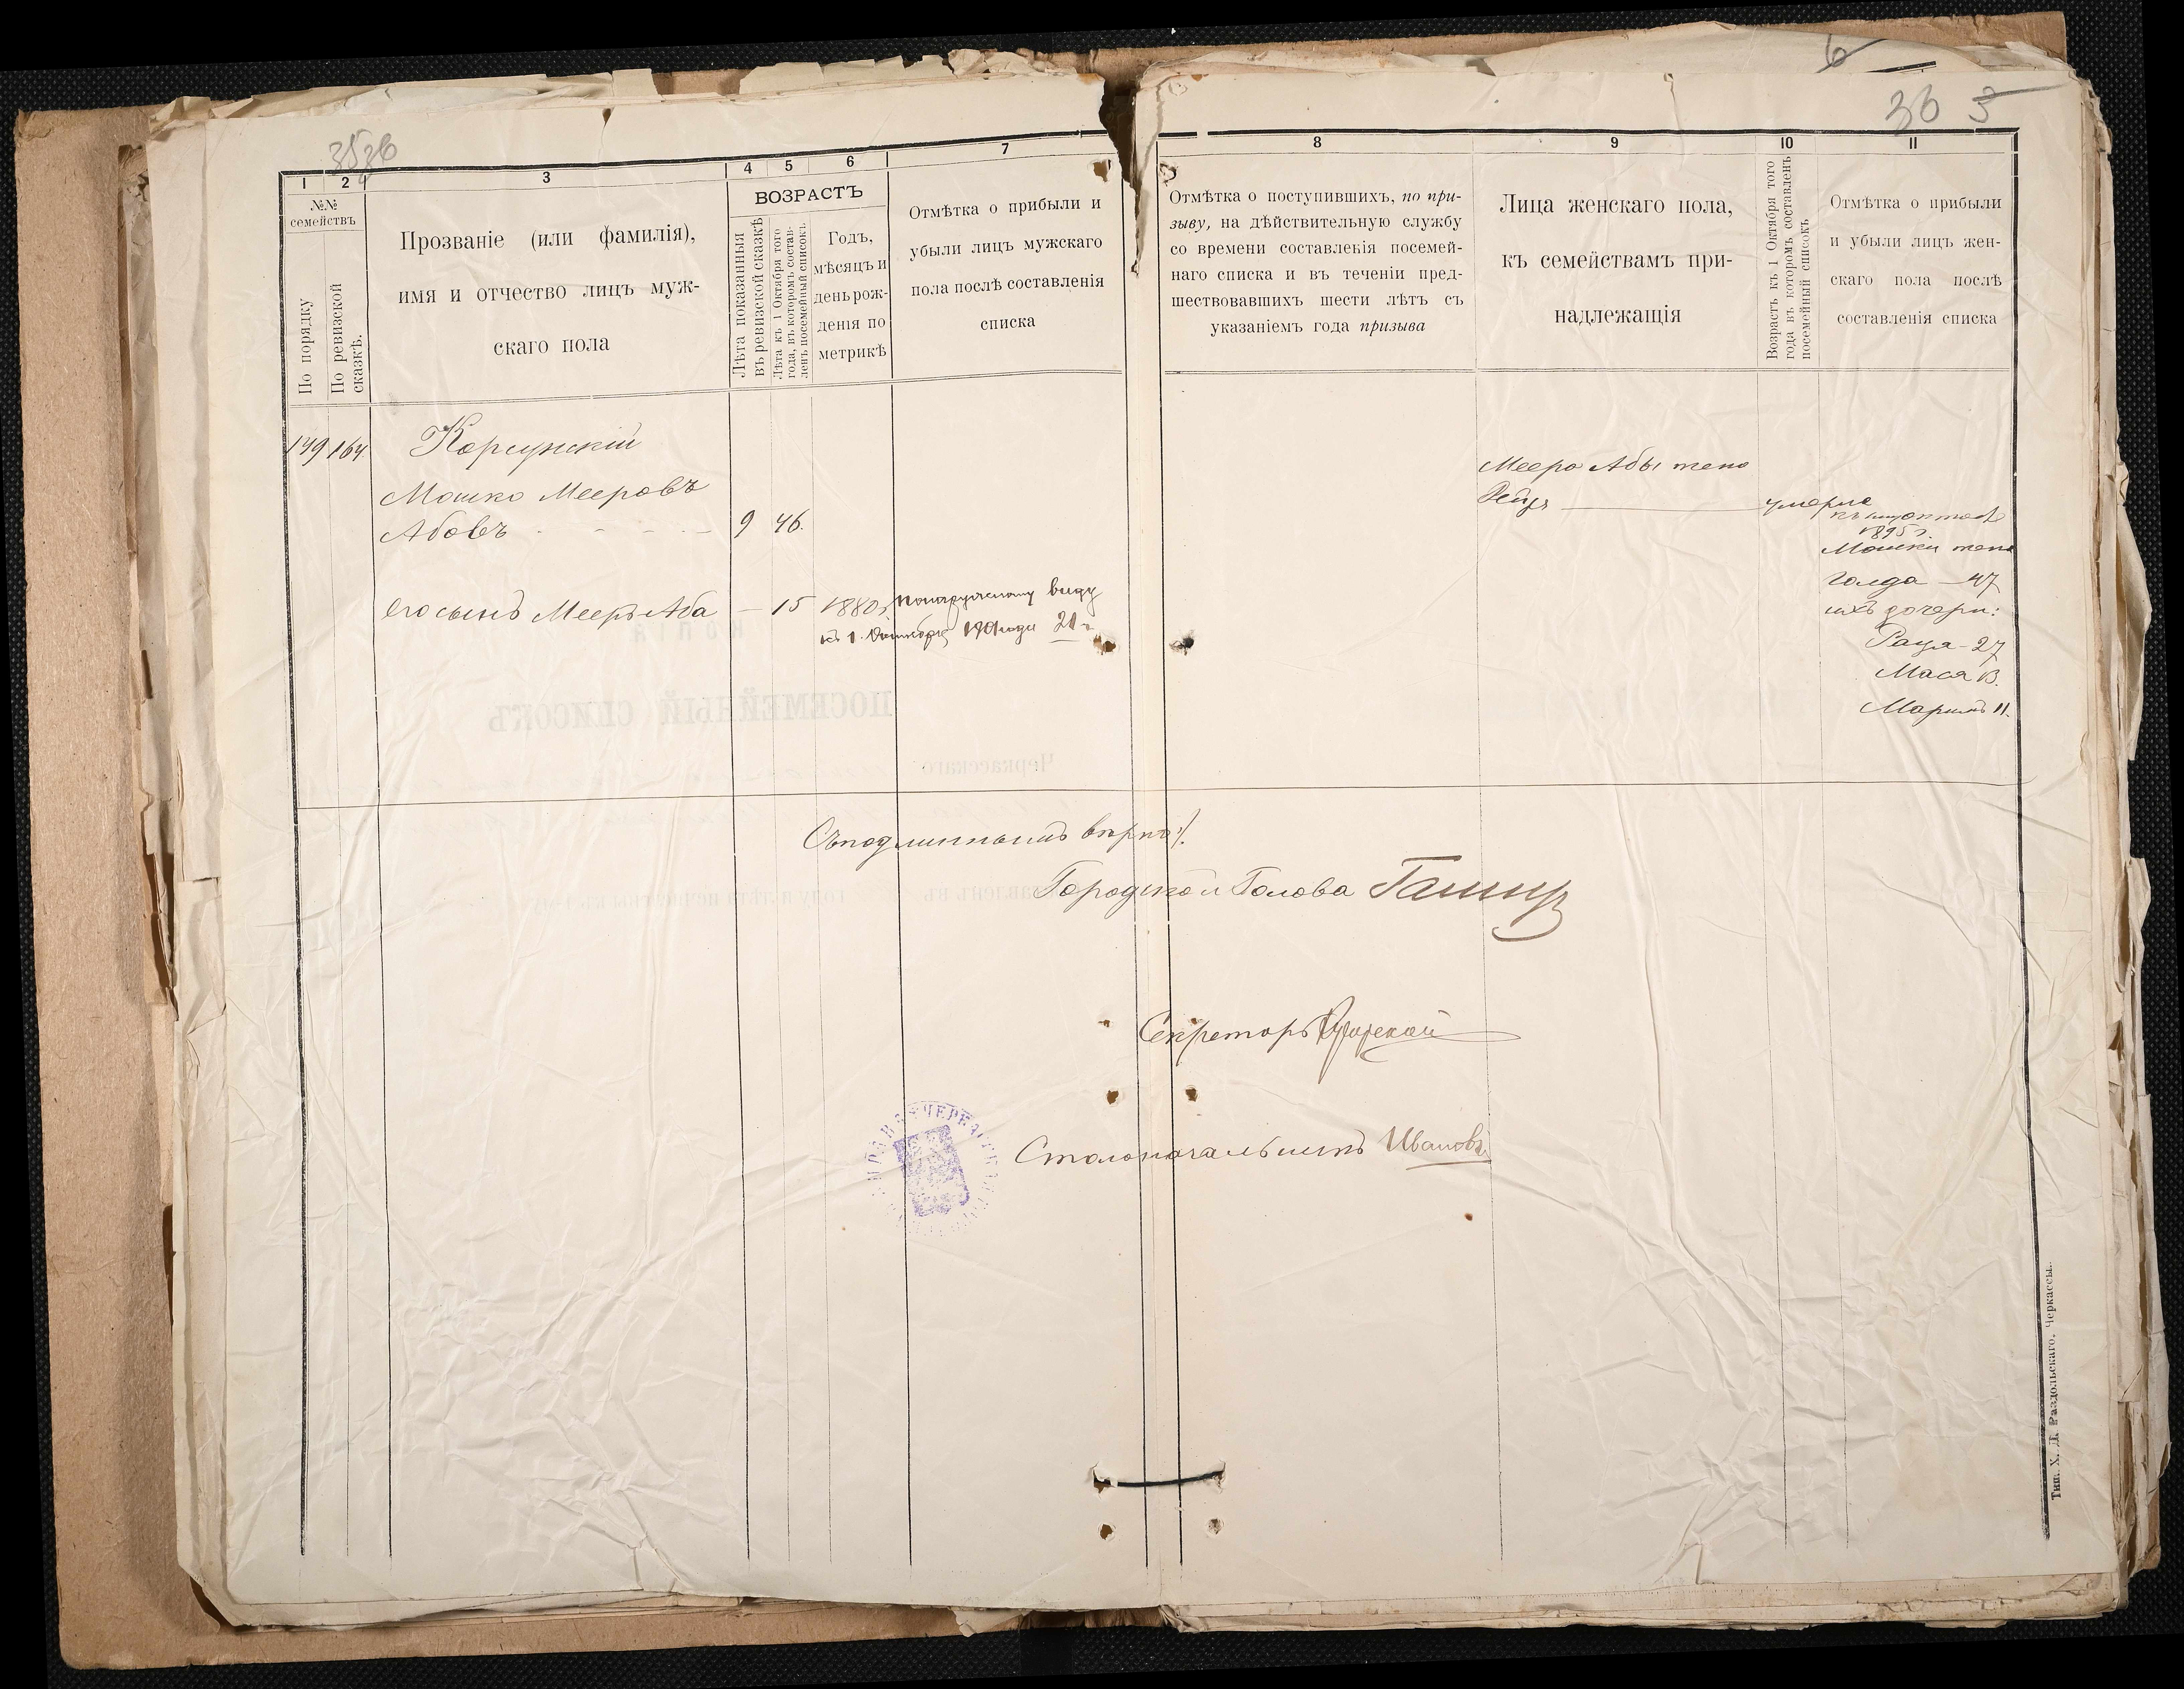 6
36 5
3536
1
2
3
4
5
6
7
8
9
10
11
№№
семействъ
По порядку
По ревизской
сказкѣ.
Прозваніе (или фамилія),
имя и отчество лицъ муж-
скаго пола
ВОЗРАСТЪ
Лѣта показанныя
въ ревизской сказкѣ
Лѣта къ 1 Октября того
года, въ которомъ состав-
ленъ посемейный списокъ.
Годъ,
мѣсяцъ и
день рож-
денія по
метрикѣ
Отмѣтка о прибыли и
убыли лицъ мужскаго
пола послѣ составленія
списка
Отмѣтка о поступившихъ, по при-
зыву, на дѣйствительную службу
со времени составленія посемей-
наго списка и въ теченіи пред-
шествовавшихъ шести лѣтъ съ
указаніемъ года призыва
Лица женскаго пола,
къ семействамъ при-
надлежащія
Возрастъ къ 1 Октября того
года въ которомъ составленъ
посемейный списокъ
Отмѣтка о прибыли
и убыли лицъ жен-
скаго пола послѣ
составленія списка
149 164
Корсунскій
Мошко Мееровъ
Абовъ 9 46.
его сынъ Мееръ Аба — 15 1880 г. по наружному виду
къ 1. Октября 1901 года 21 г.
Меера Абы жена
умерла
1895 г.
Мошки жена
Голда — 47
ихъ дочери:
Рася - 27
Мася 13.
Маримъ 11.
ПОСЕМЕЙНЫЙ СПИСОКЪ
Черкасскаго
Съ подлиннымъ вѣрно:
Городской Голова
Секретарь
Столоначальникъ Ивановъ
Тип. Х. Д. Раздольскаго. Черкассы.